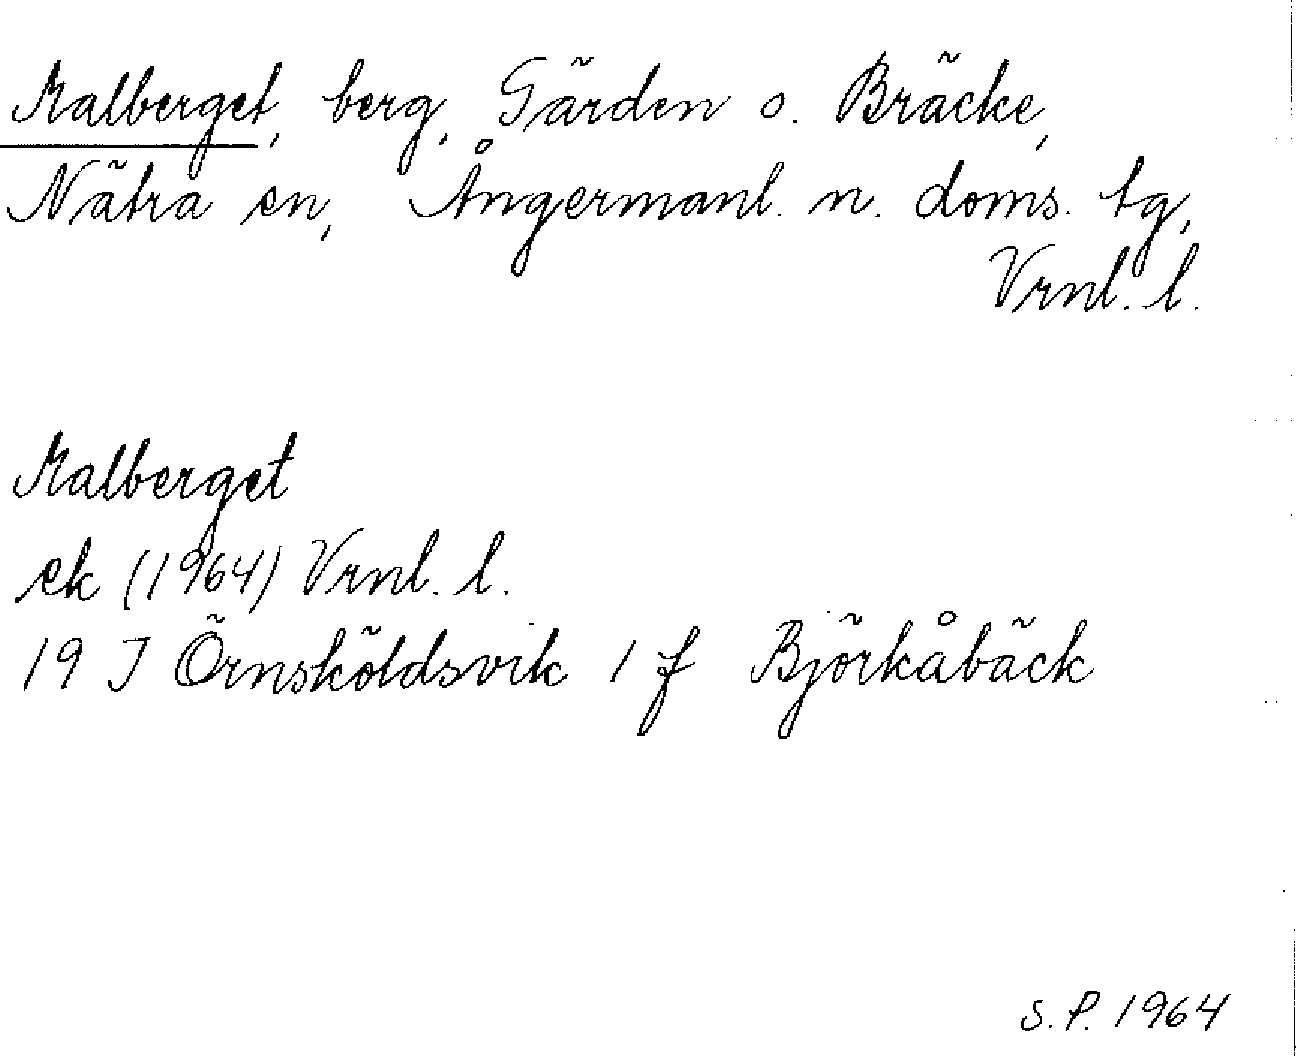 Malberget, berg, Gärden o. Bräcke,
Nätra sn, Ångermanl. n. doms. tg,
Vrnl. l.
Malberget
ek (1964) Vrnl. l.
19 J Örnsköldsvik 1 f Björkåbäck
S. P. 1964